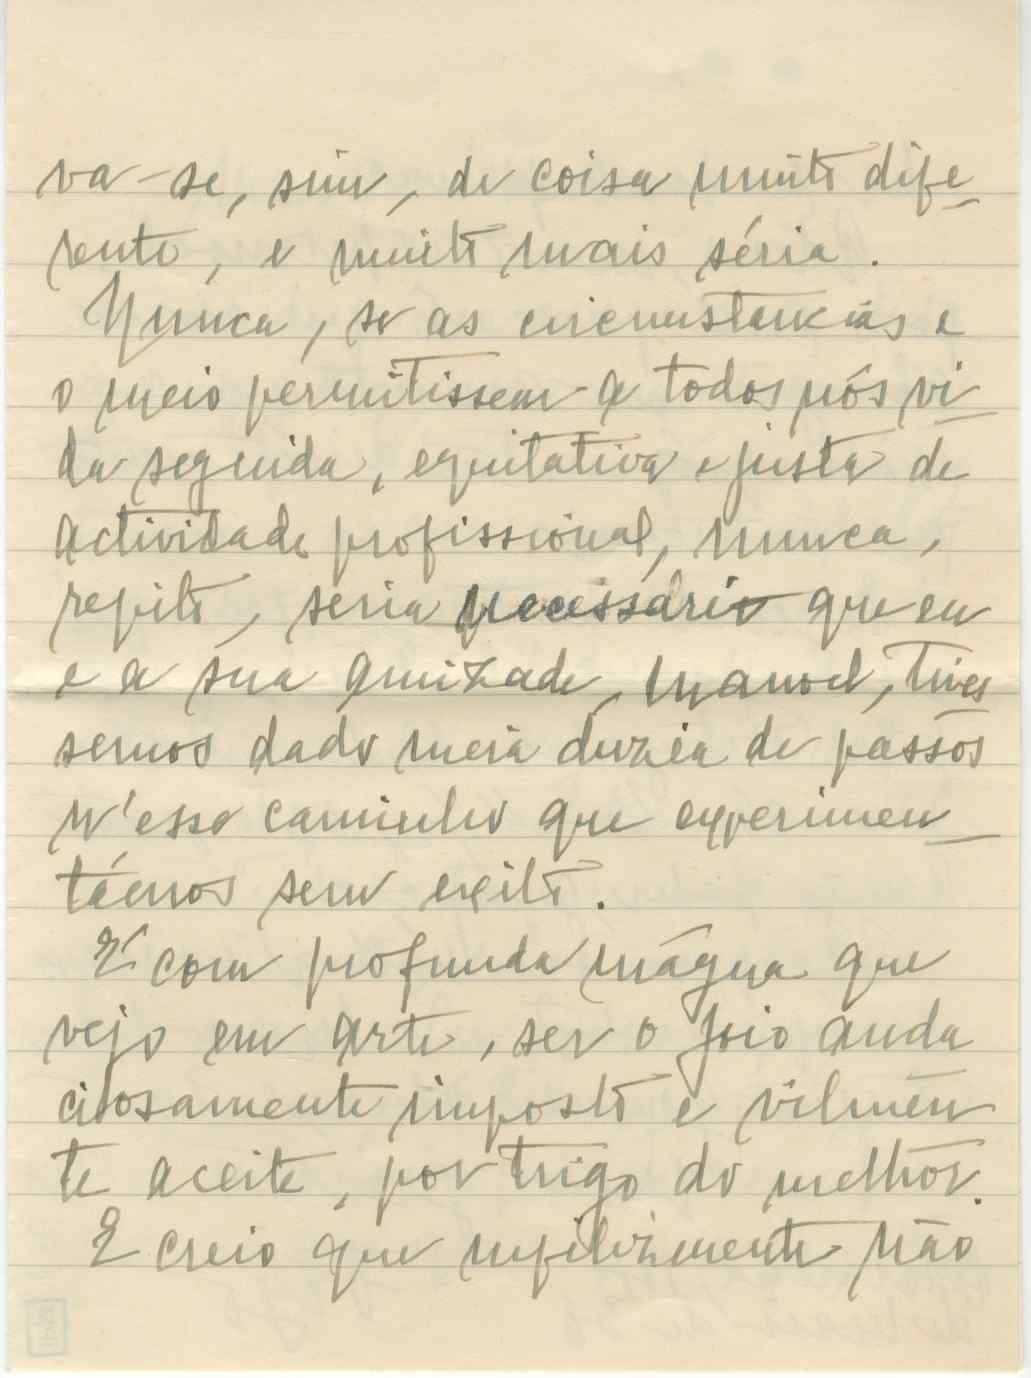 va-se, sim, de coisa muito dife-
rente, e muito mais séria.
Nunca, se as circunstancias e
o meio permitissem a todos nós vi-
da seguida, equitativa e justa de
actividade profissional, nunca,
repito, seria necessário que eu
e a sua amizade, Manoel, tives
semos dado meia duzia de passos
n'esse caminho que experimen-
támos sem exito.
É com profunda mágua que
vejo em arte, ser o joio auda
ciosamente imposto e vilmen
te aceite, por trigo do melhor.
E creio que infelizmente não